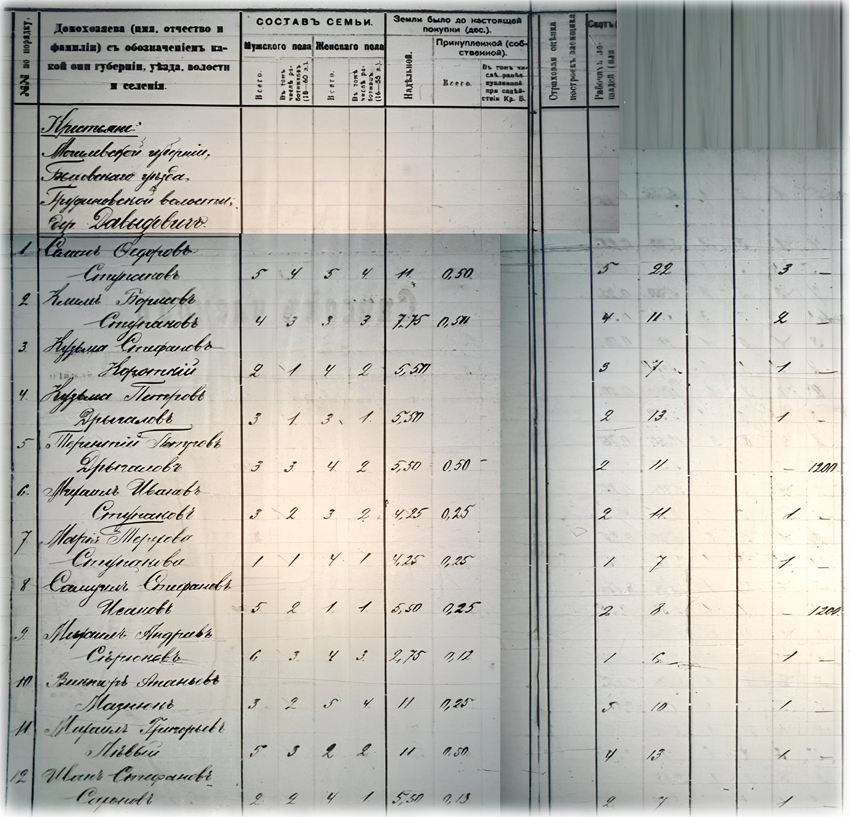 №№ по порядку.
Домохозяева (имя, отчество и
фамилія) съ обозначеніемъ ка-
кой они губерніи, уѣзда, волости
и селенія.
СОСТАВЪ СЕМЬИ.
Мужского пола Женскаго пола
Всего.
Въ томъ числѣ ра-ботниковъ (18—60 л.).
Всего.
Въ томъ числѣ ра-ботницъ (16—55 л.).
Земли было до настоящей
покупки (дес.).
Надѣльной.
Прикупленной (соб-
ственной).
Всего.
Въ томъ чи-
слѣ ранѣе
купленной
при содѣй-
ствіи Кр. Б.
Страховая оцѣнка
построекъ заемщика
Рабочихъ ло-
шадей (или
Крестьяне:
Могилевской губерніи,
уѣзда,
волости,
дер. Давыдовичъ.
1 Федоровъ
Ступаковъ 5 4 5 4 11 0,50 5 22 3 —
2 Климъ Борисовъ
Ступаковъ 4 3 3 3 7,75 0,50 4 11 2 —
3. Кузьма Стефановъ
Короткій 2 1 4 2 5,50 3 7 1 —
4. Кузьма Петровъ
Дрыгаловъ 3 1 3 1 5,50 2 13 1 —
5 Петровъ
Дрыгаловъ 3 3 4 2 5,50 0,50 — 2 11 — 1200
6 Михаилъ Ивановъ
Ступаковъ 3 2 3 2 4,25 0,25 2 11 1 —
7 Марія
Ступакова 1 1 4 1 4,25 0,25 1 7 1 —
8 Самуилъ Стефановъ
Исаковъ 5 2 1 1 5,50 0,25 2 8 — 1200
9 Михаилъ
6 3 4 3 2,75 0,12 1 6 1 —
10 Ананьевъ
Мазнюкъ 3 2 5 4 11 0,25 5 10 1 —
11 Михаилъ Григорьевъ
Лѣвый 5 3 2 2 11 0,50 4 13 1 —
12 Иванъ Стефановъ
2 2 4 1 5,50 0,13 2 7 1 —